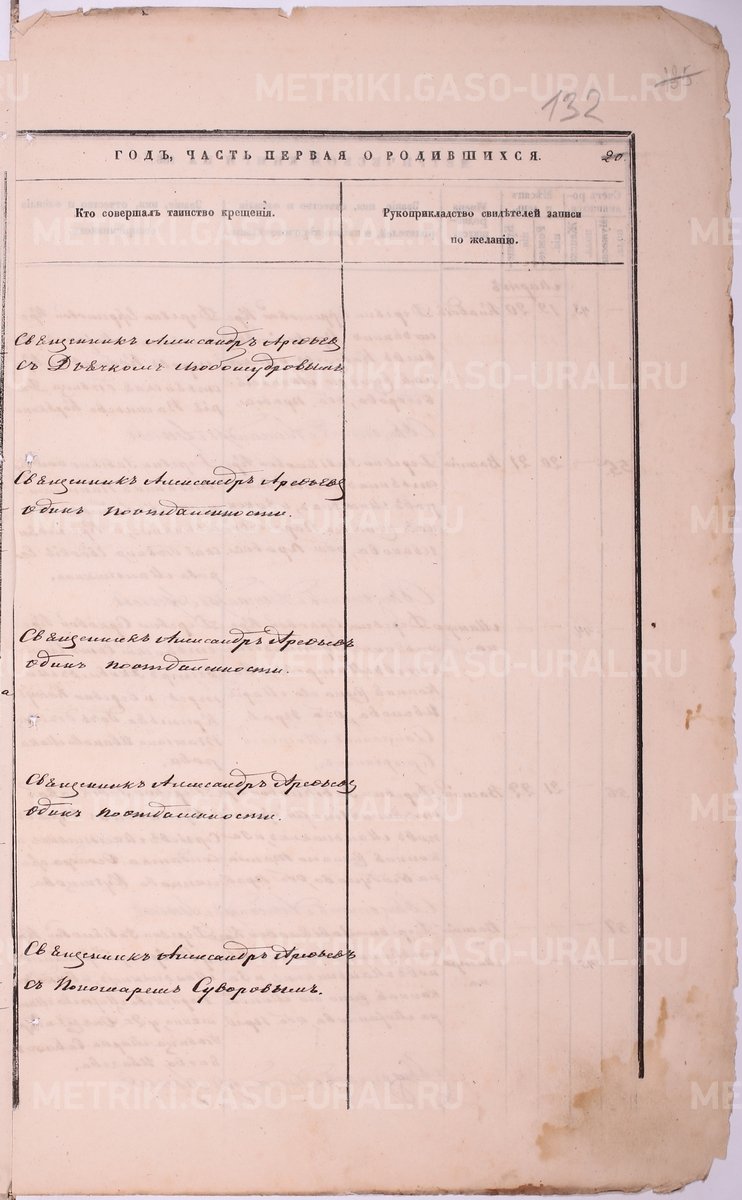 185
132
ГОДЪ, ЧАСТЬ ПЕРВАЯ О РОДИВШИХСЯ.
20
Кто совершалъ таинство крещенія.
Рукоприкладство свидѣтелей записи
по желанію.
Священникъ Александръ Арефьевъ
съ Дьячкомъ Любомудровымъ
Священникъ Александръ Арефьевъ
Одинъ поотдаленности.
Священникъ Александръ Арефьевъ
Одинъ поотдаленности.
Священникъ Александръ Арефьевъ
Одинъ поотдаленности.
Священникъ Александръ Арефьевъ
съ Пономаремъ Суворовымъ.
METRIKI.GASO-URAL.RU